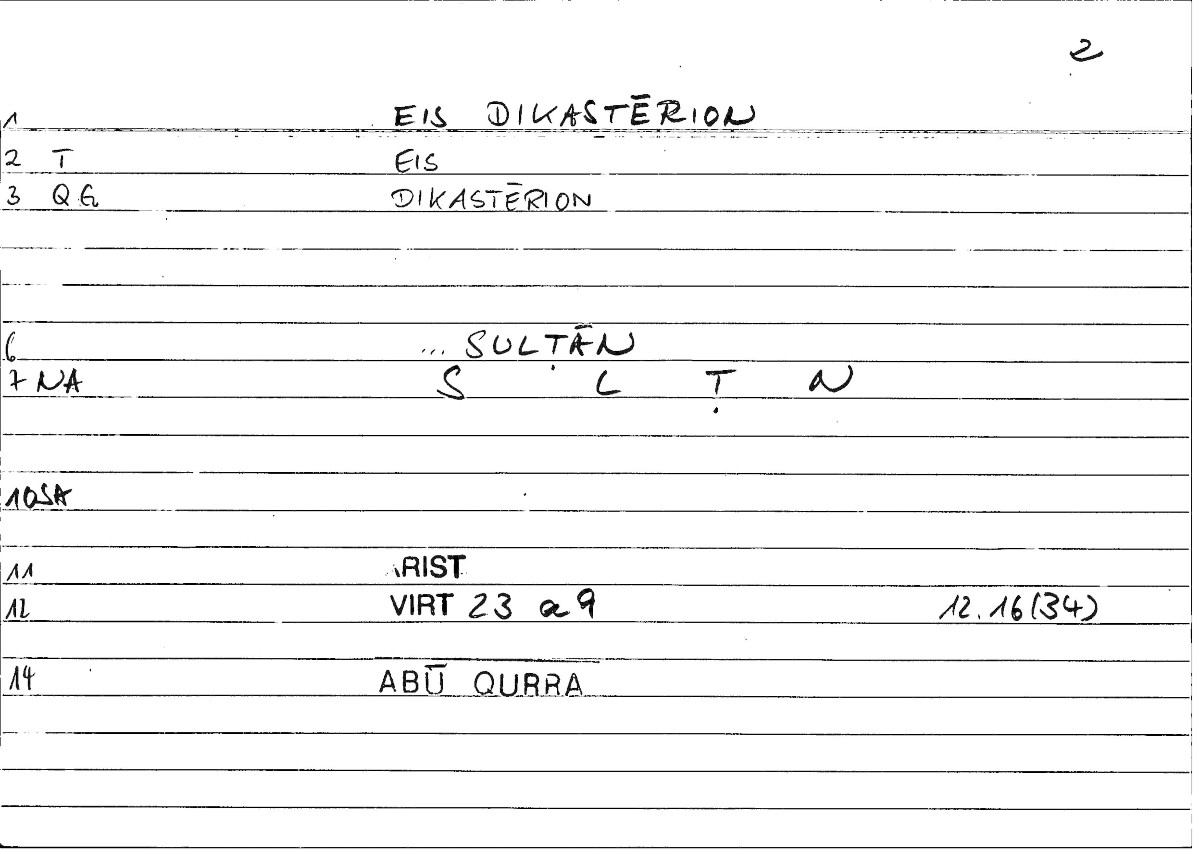 2
1 EIS DIKASTĒRION
2 T EIS
3 QG DIKASTĒRION
6 ... SULṬĀN
7 NA S L Ṭ N
10 SA
11 ARIST
12 VIRT 23 a 9 12.16(34)
14 ABŪ QURRA